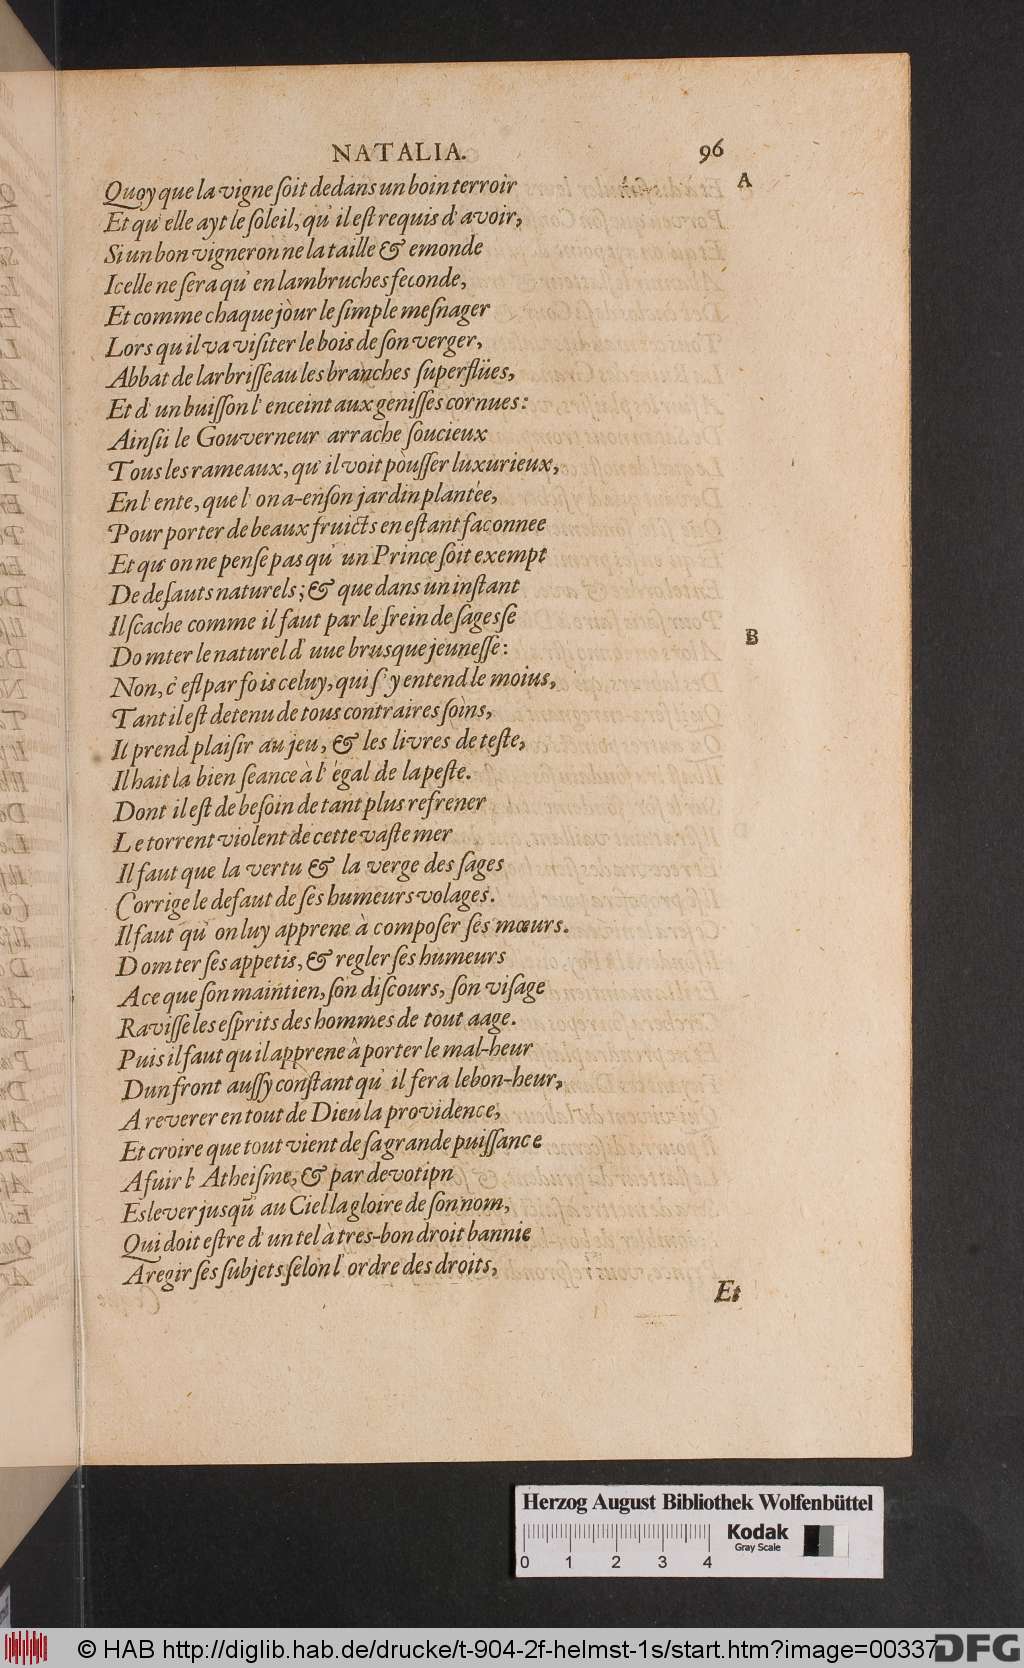 NATALIA. 96
A
Quoy que la vigne soit dedans un boin terroir
Et qu' elle ayt le soleil, qu' il est requis d' avoir,
Si un bon vigneron ne la taille & emonde
Icelle ne sera qu' en lambruches feconde,
Et comme chaque jour le simple mesnager
Lors qu il va visiter le bois de son verger,
Abbat de larbrisseau les branches superflües,
Et d' un buisson l' enceint aux genisses cornues:
Ainsü le Gouverneur arrache soucieux
Tous les rameaux, qu' il voit pòusser luxurieux,
En l' ente, que l' on a-en son jardin plantée,
Pour porter de beaux fruicts en estant faconnee
Et qu' on ne pense pas qu' un Prince soit exempt
De defauts naturels; & que dans un instant
Il scache comme il faut par le frein de sagesse
B
Domter le naturel d' uue brusque jeunesse:
Non, c' est par fois celuy, qui s' y entend le moius,
Tant il est detenu de tous contraires soins,
Il prend plaisir au jeu, & les livres deteste,
Il hait la bien seance à l' égal de la peste.
Dont il est de besoin de tant plus refrener
Le torrent violent de cette vaste mer
Il faut que la vertu & la verge des sages
Corrige le defaut de ses humeurs volages.
Il faut qu' on luy apprene à composer ses mœurs.
Domter ses appetis, & regler ses humeurs
A ce que son maintien, son discours, son visage
Ravisse les esprits des hommes de tout aage.
Puis il faut qu il apprene à porter le mal-heur
Dun front aussy constant qu' il fera le bon-heur,
A reverer en tout de Dieu la providence,
Et croire que tout vient de sa grande puissance
A fuir l' Atheisme, & par devotipn
Eslever jusqu' au Ciel la gloire de son nom,
Qui doit estre d' un tel à tres-bon droit bannie
A regir ses subjets selon l' ordre des droits,
Et
Herzog August Bibliothek Wolfenbüttel
Kodak
Gray Scale
0 1 2 3 4
© HAB http://diglib.hab.de/drucke/t-904-2f-helmst-1s/start.htm?image=00337
DFG